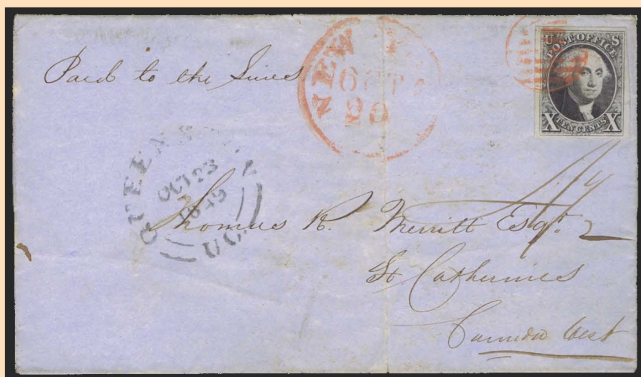 Paid to the Lines
NEW
OCT
20
U S
POST OFFICE
X X
TEN CENTS
QUEENSTON
OCT 23
1849
U.C.
Thomas R. Merritt Esqr.
St Catherines
Canada West